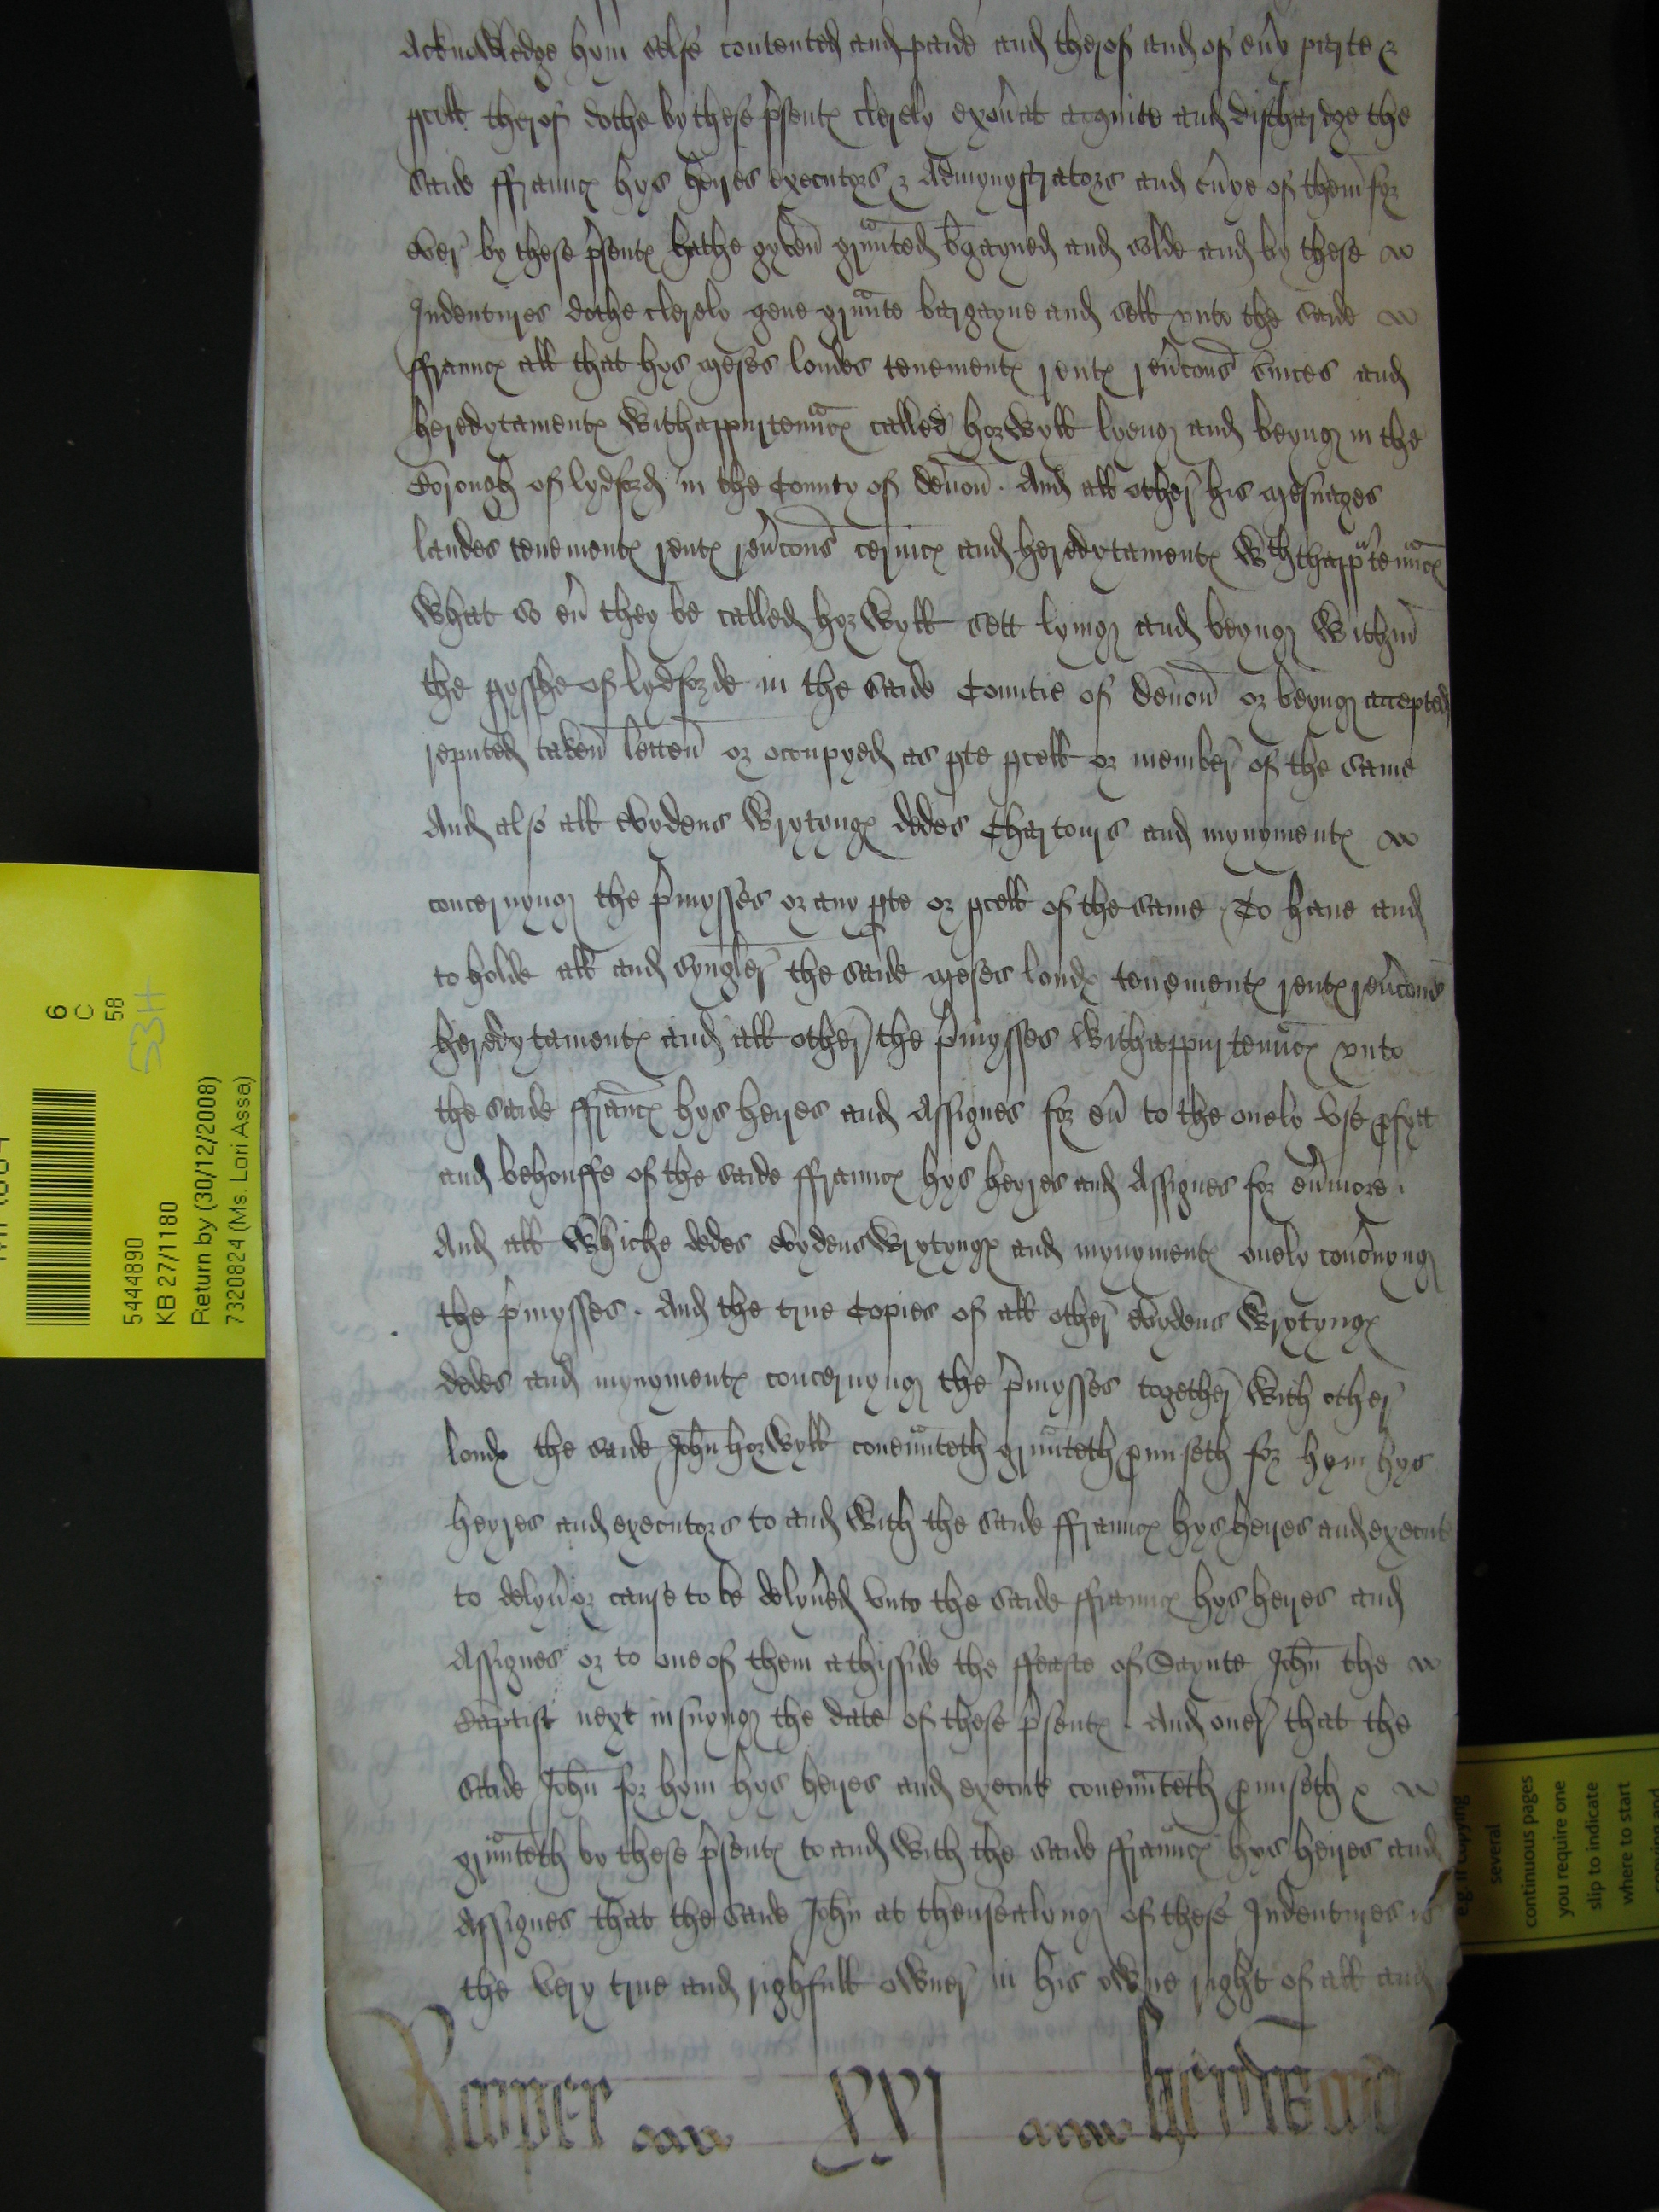 Acknowledge hym selfe contented and paide and therof and of eu'y parte &
p'cell therof dothe by these p'sent' clerely exon'at acquite and discharge the
saide ffraunc' hys heyres executors & Admynystrators and eu'ye of them for
ever by these p'sent' hathe gyven graunted b'gayned and solde and by these
Indentures dothe clerely geue graunte bargayne and sell vnto the saide
ffraunc' all that hys meses londes tenement' rent' reu'cons s'uices and
heredytament' withappurtenanc' called horwyll lyeng and beyng in the
Borough of lydford in the County of Deuon . And all other his mesuages
landes tenement' rent' reu'cons ceruic' and heredytament' wth thapp'tenanc'
what so eu' they be called horwyll sett lying and beyng within
the p'yshe of lydforde in the saide Countie of Deuon or beyng accepted
reputed taken letten or occupyed as p'te p'cell or member of the same
And also all evydens wrytyng' dedes Chartours and mynyment'
concernyng the p'mysses or any p'te or p'cell of the same / To haue and
to holde all and syngler the saide meses lond' tenement' rent' reu'cons
heredytament' and all other the p'mysses withappurtenanc' vnto
the saide ffraunc' hys heyres and Assignes for eu' to the onely vse p'fytt
and behouffe of the saide ffraunc' hys heyres and Assignes for eu'more .
And all whiche dedes evydens wrytyng' and mynyment' onely conc'nyng
the p'mysses . And the true Copies of all other evydens wrytyng'
dedes and mynyment' concernyng the p'mysses together with other
lond' the saide John horwyll couennteth graunteth p'miseth for hym hys
heyres and executors to and with the saide ffraunc' hys heyres and execut'
to delyu' or cause to be delyu'ed vnto the saide ffraunc' hys heyres and
Assignes or to one of them athisside the ffeaste of Saynte John the
Baptist next insuyng the date of these p'sent' . And ouer that the
saide John for hym hys heyres and execut' couenanteth p'miseth &
graunteth by these p'sent' to and with the saide ffraunc' hys heyres and
Assignes that the saide John at thensealyng of these Indentures is
the very true and righfull owner in his owne right of all and
Rooper xxj
5444890
KB 27/1180
Return by (30/12/2008)
7320824 (Ms. Lori Assa)
6
C
58
53H
e.g. if copying
several
continuous pages
you require one
slip to indicate
where to start